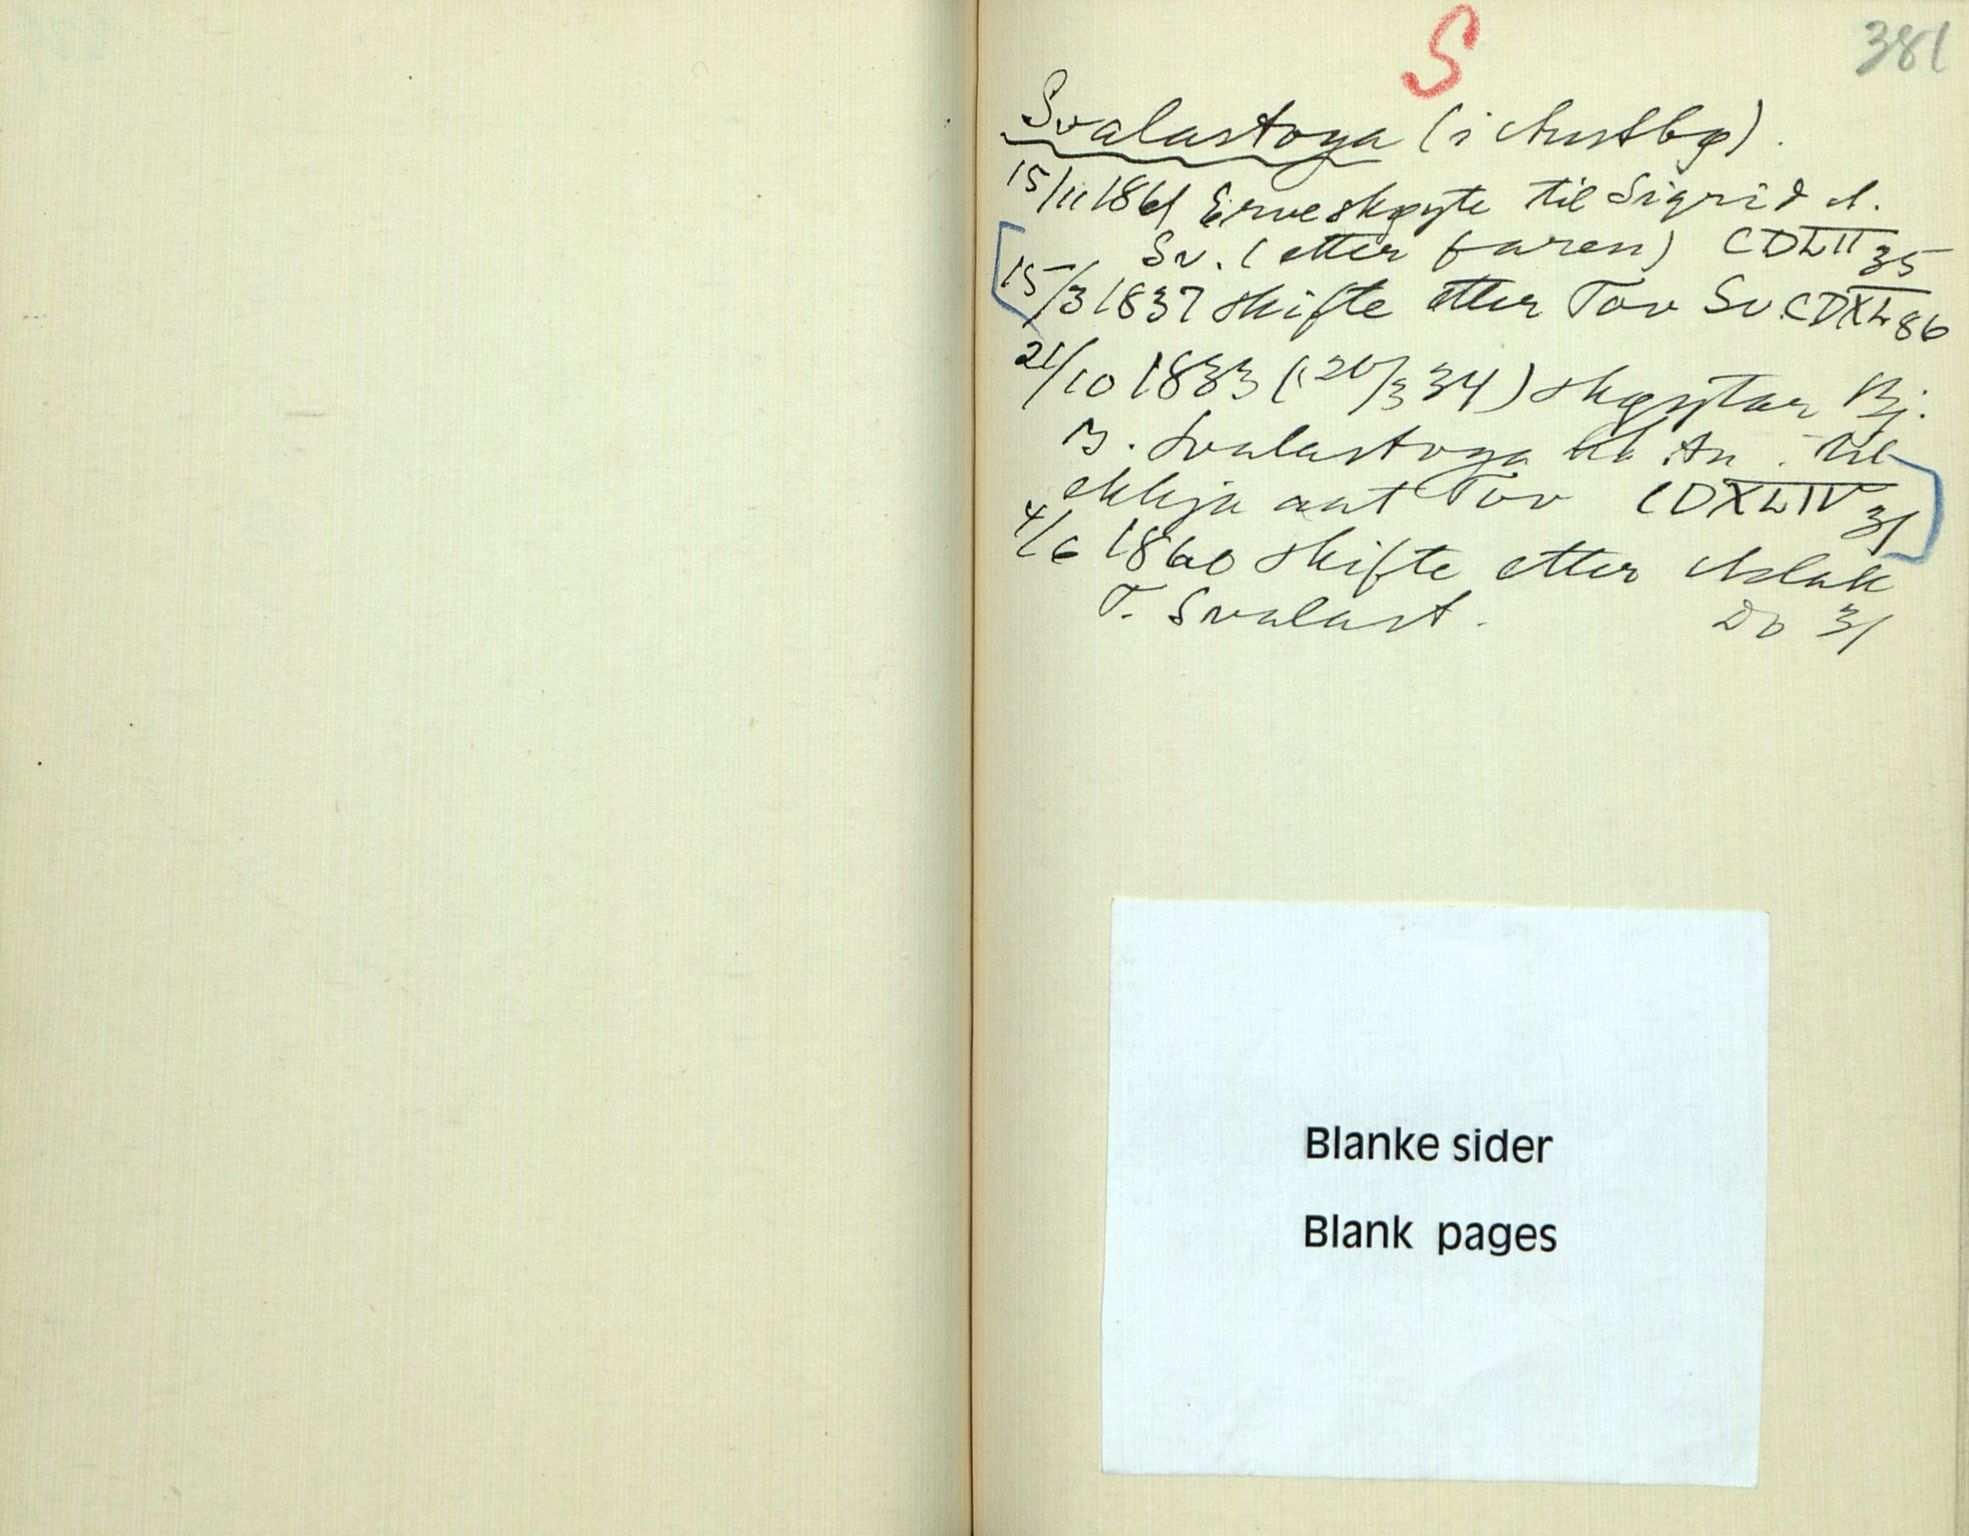 S
381
Svalastoga (i Austbø).
15/11 1861 Erveskøyte til Sigrid A.
Sv. (etter faren) CDLII 35
15/3 1837 skifte etter Tov Sv. CDXL 86
21/10 1833 (20/3 34) skøytar Bj.
B. Svalastoga til
ekkja aat Tov CDXLIV 31
4/6 1860 skifte etter Aslak
T. Svalast. Do 31
Blanke sider
Blank pages